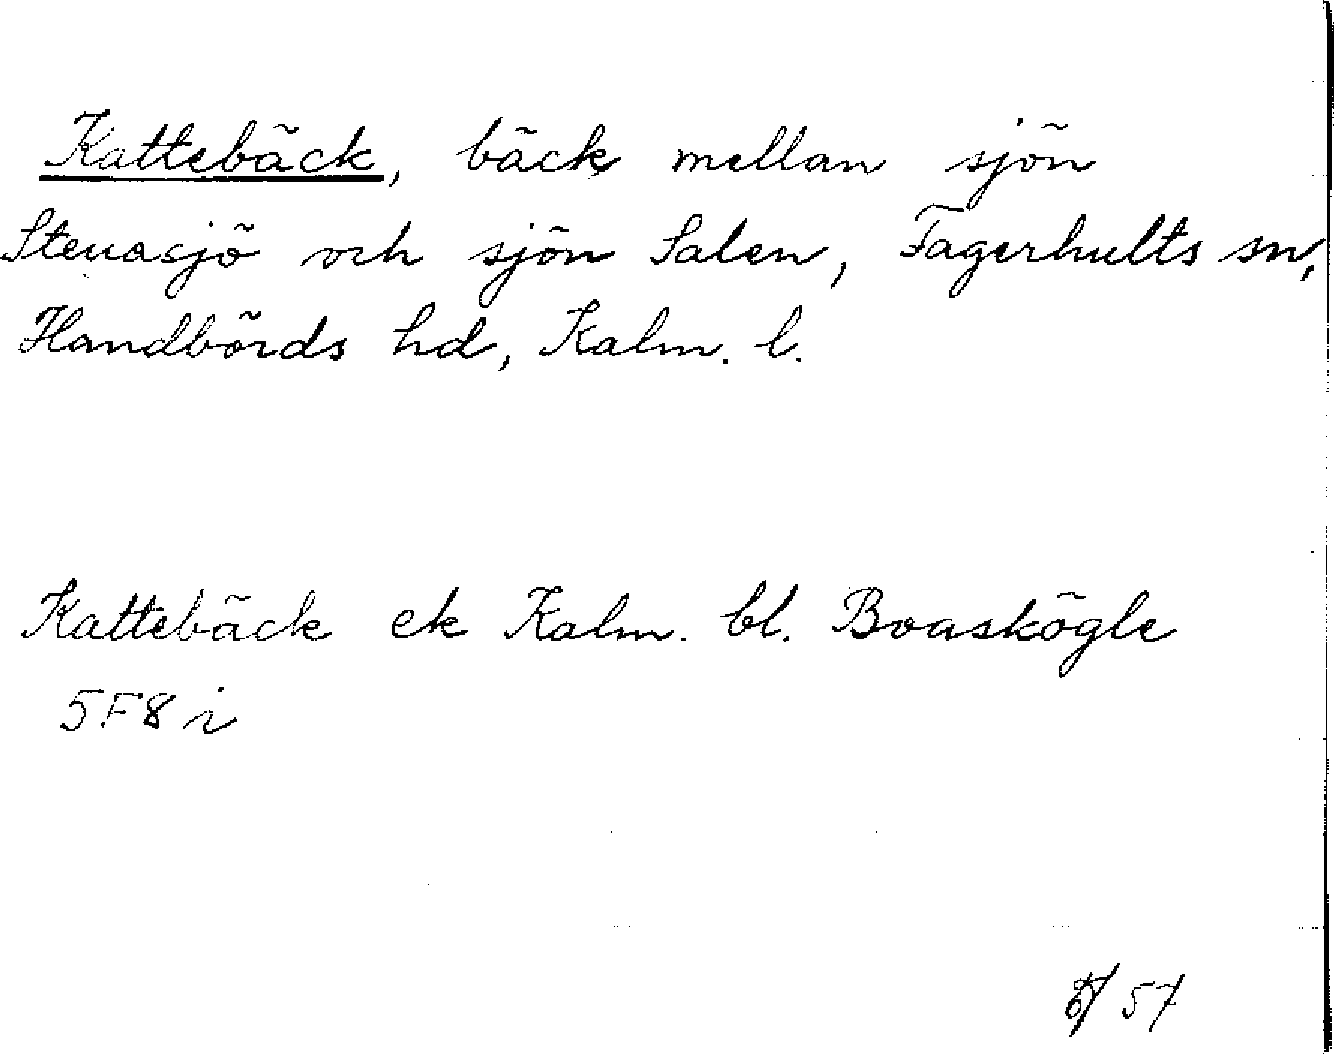 Kattebäck, bäck mellan sjön
Stenasjö och sjön Salen, Fagerhults sn,
Handbörds hd, Kalm. l.
Kattebäck ek Kalm. bl. Boaskögle
5F8i
57